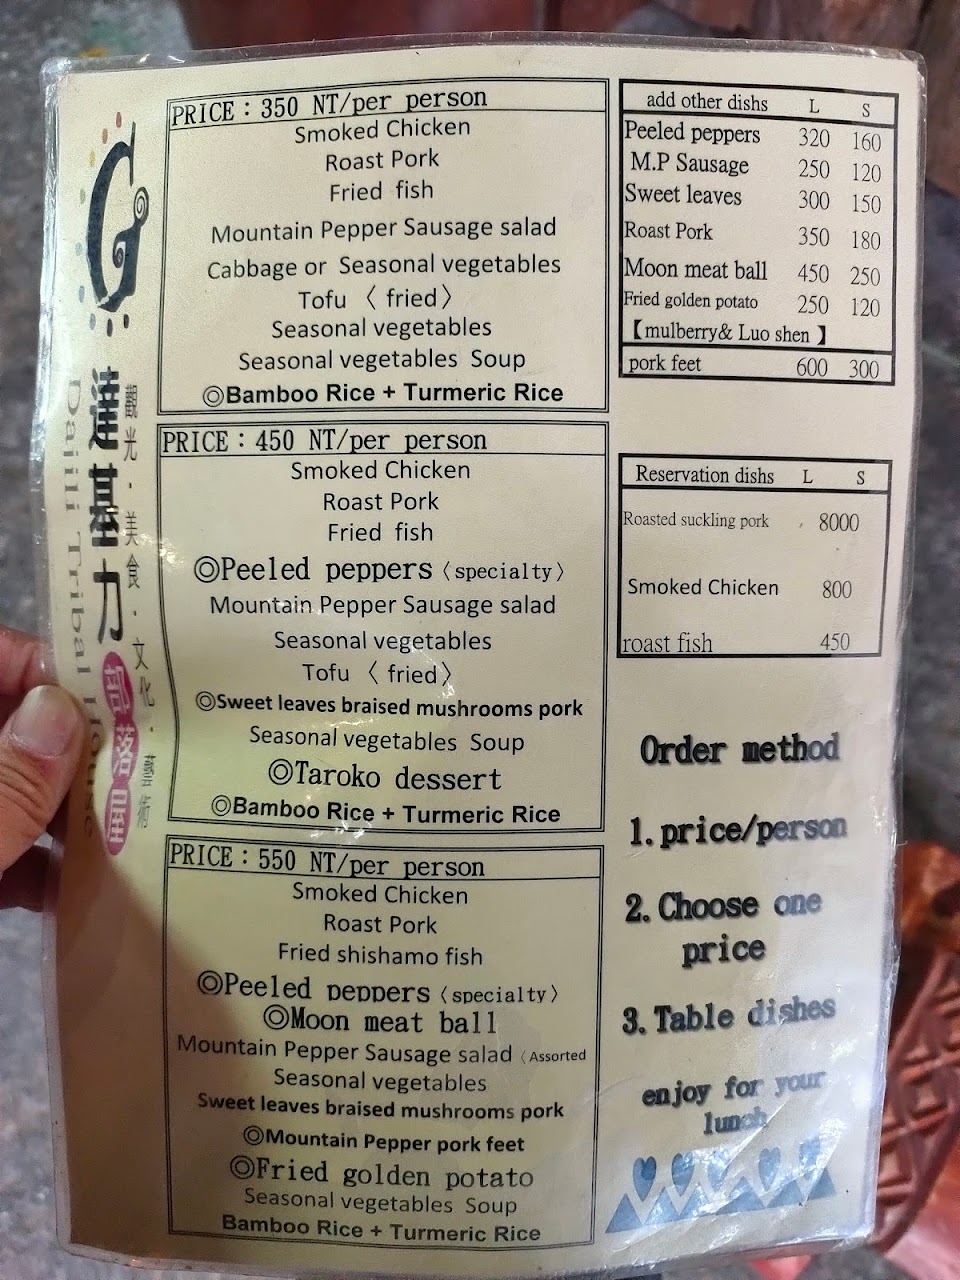 觀光．美食．文化．藝術
達基力
部落屋
Dajili Tribal House
PRICE：350 NT/per person
Smoked Chicken
Roast Pork
Fried fish
Mountain Pepper Sausage salad
Cabbage or Seasonal vegetables
Tofu〈fried〉
Seasonal vegetables
Seasonal vegetables Soup
◎Bamboo Rice + Turmeric Rice
PRICE：450 NT/per person
Smoked Chicken
Roast Pork
Fried fish
◎Peeled peppers〈specialty〉
Mountain Pepper Sausage salad
Seasonal vegetables
Tofu〈fried〉
◎Sweet leaves braised mushrooms pork
Seasonal vegetables Soup
◎Taroko dessert
◎Bamboo Rice + Turmeric Rice
PRICE：550 NT/per person
Smoked Chicken
Roast Pork
Fried shishamo fish
◎Peeled peppers〈specialty〉
◎Moon meat ball
Mountain Pepper Sausage salad〈Assorted
Seasonal vegetables
Sweet leaves braised mushrooms pork
◎Mountain Pepper pork feet
◎Fried golden potato
Seasonal vegetables Soup
Bamboo Rice + Turmeric Rice
add other dishs L S
Peeled peppers 320 160
M.P Sausage 250 120
Sweet leaves 300 150
Roast Pork 350 180
Moon meat ball 450 250
Fried golden potato 250 120
【mulberry& Luo shen】
pork feet 600 300
Reservation dishs L S
Roasted suckling pork 8000
Smoked Chicken 800
roast fish 450
Order method
1. price/person
2. Choose one
price
3. Table dishes
enjoy for your
lunch